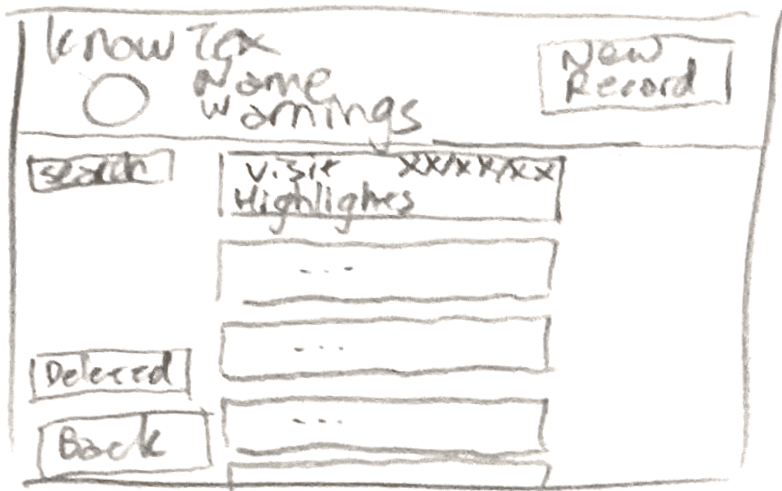 Know Tox
Name
Warnings
New
Record
Search
Visit XX/XX/XX
Highlights
...
...
...
Deleted
Back